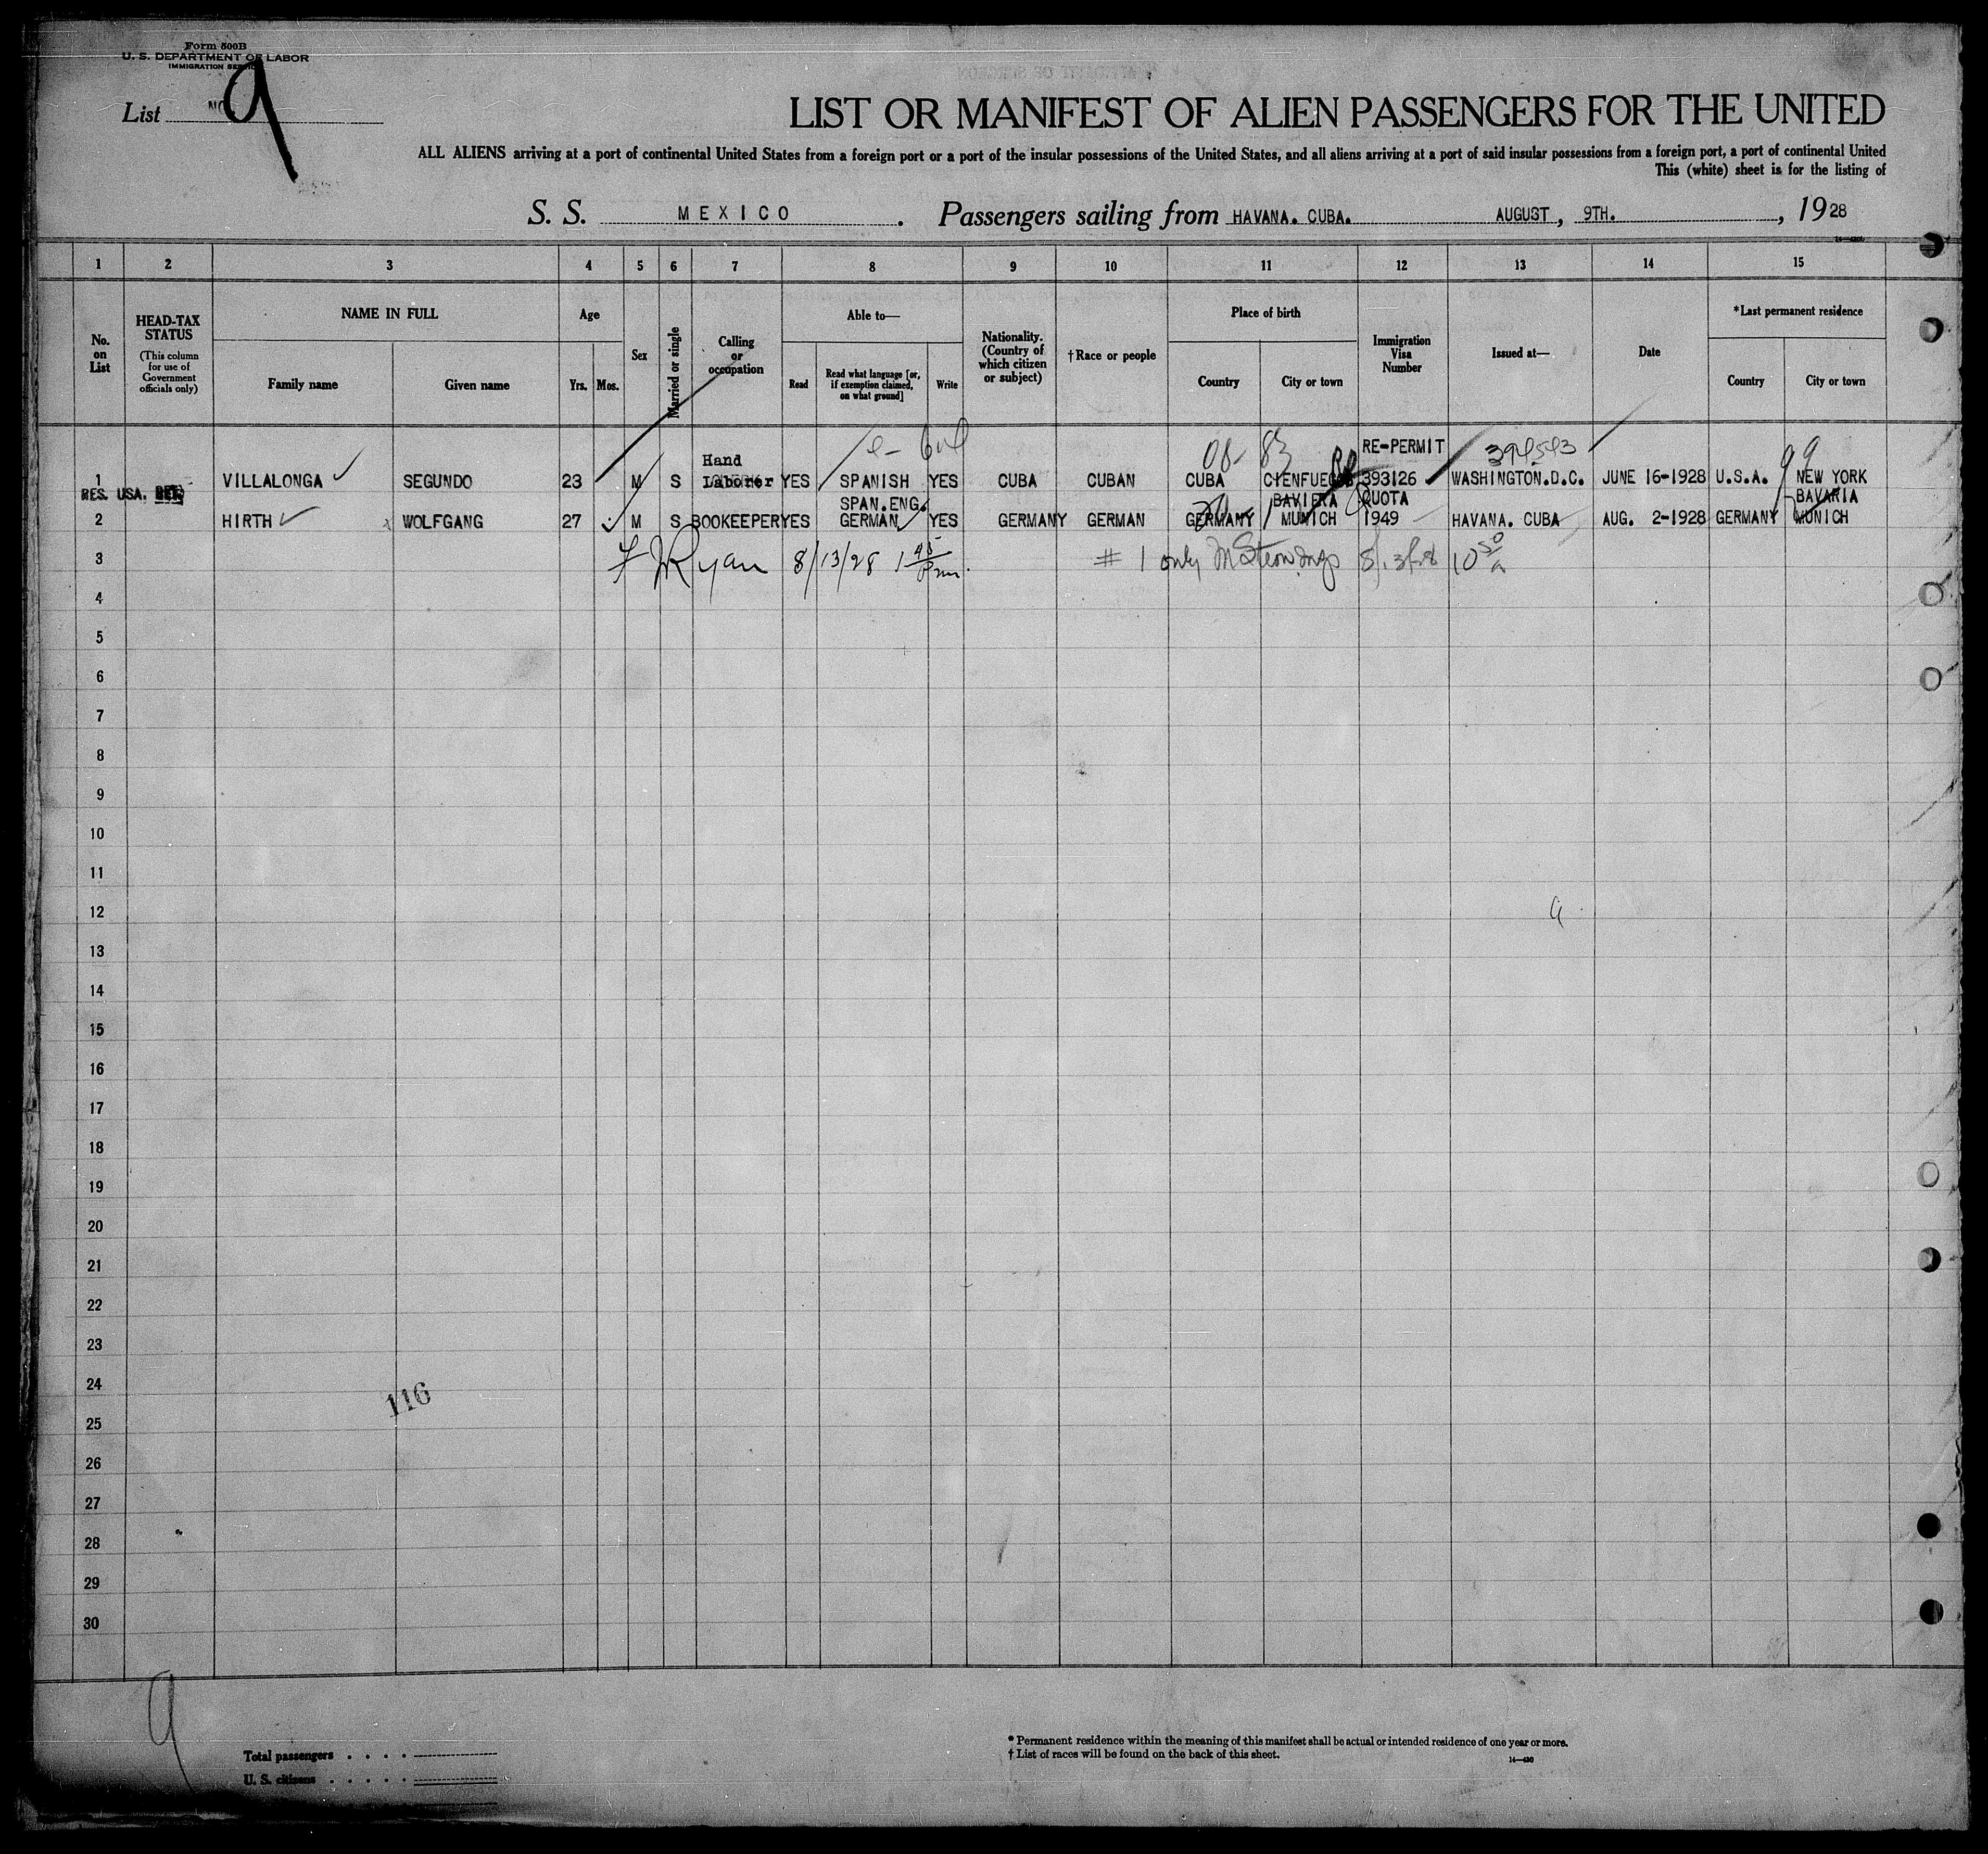 Form 500B
U. S. DEPARTMENT OF LABOR
IMMIGRATION SERVICE
List NO 9
LIST OR MANIFEST OF ALIEN PASSENGERS FOR THE UNITED
ALL ALIENS arriving at a port of continental United States from a foreign port or a port of the insular possessions of the United States, and all aliens arriving at a port of said insular possessions from a foreign port, a port of continental United
This (white) sheet is for the listing of
S. S. MEXICO. Passengers sailing from HAVANA. CUBA. AUGUST, 9TH., 1928
1 2 3 4 5 6 7 8 9 10 11 12 13 14 15
No. on List
HEAD-TAX STATUS (This column for use of Government officials only)
NAME IN FULL
Family name Given name
Age
Yrs. Mos.
Sex
Married or single
Calling or occupation
Able to—
Read Read what language [or, if exemption claimed, on what ground] Write
Nationality. (Country of which citizen or subject)
†Race or people
Place of birth
Country City or town
Immigration Visa Number
Issued at—
Date
*Last permanent residence
Country City or town
08- 83 RE-PERMIT 99
Hand
1 VILLALONGA SEGUNDO 23 M S Laborer YES SPANISH YES CUBA CUBAN CUBA CIENFUEGOS 393126 WASHINGTON.D.C. JUNE 16-1928 U.S.A. NEW YORK
RES. USA. SPAN.ENG. BAVIERA QUOTA BAVARIA
2 HIRTH WOLFGANG 27 M S BOOKEEPER YES GERMAN YES GERMANY GERMAN GERMANY MUNICH 1949 HAVANA. CUBA AUG. 2-1928 GERMANY MUNICH
3 F J Ryan 8/13/28 1 45 Pm. # 1 only 10 50 a
4
5
6
7
8
9
10
11
12 9
13
14
15
16
17
18
19
20
21
22
23
24
116
25
26
27
28
29
30
9
Total passengers . . . .
U. S. citizens . . . . .
* Permanent residence within the meaning of this manifest shall be actual or intended residence of one year or more.
† List of races will be found on the back of this sheet.